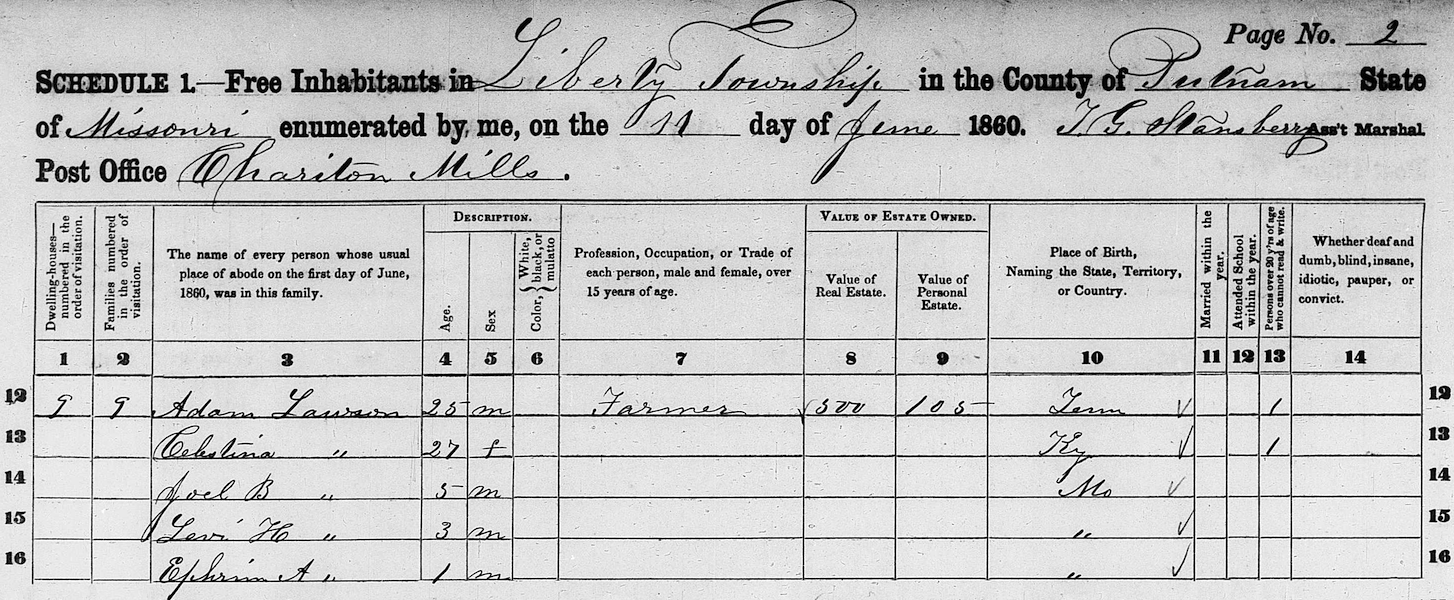 Page No. 2
SCHEDULE 1.—Free Inhabitants in Liberty Township in the County of Putnam State
of Missouri enumerated by me, on the 11 day of June 1860. T. G. Stansberry Ass't Marshal
Post Office Chariton Mills.
Dwelling-houses—numbered in the order of visitation. Families numbered in the order of visitation. The name of every person whose usual place of abode on the first day of June, 1860, was in this family. DESCRIPTION. Age. Sex Color, { White, black, or mulatto Profession, Occupation, or Trade of each person, male and female, over 15 years of age. VALUE OF ESTATE OWNED. Value of Real Estate. Value of Personal Estate. Place of Birth, Naming the State, Territory, or Country. Married within the year. Attended School within the year. Persons over 20 y'rs of age who cannot read & write. Whether deaf and dumb, blind, insane, idiotic, pauper, or convict.
1 2 3 4 5 6 7 8 9 10 11 12 13 14
12 9 9 Adam Lawson 25 m Farmer 500 105 Tenn 1 12
13 Celestina " 27 f Ky 1 13
14 Joel B " 5 m Mo 14
15 Levi H " 3 m " 15
16 Ephrim A " 1 m " 16